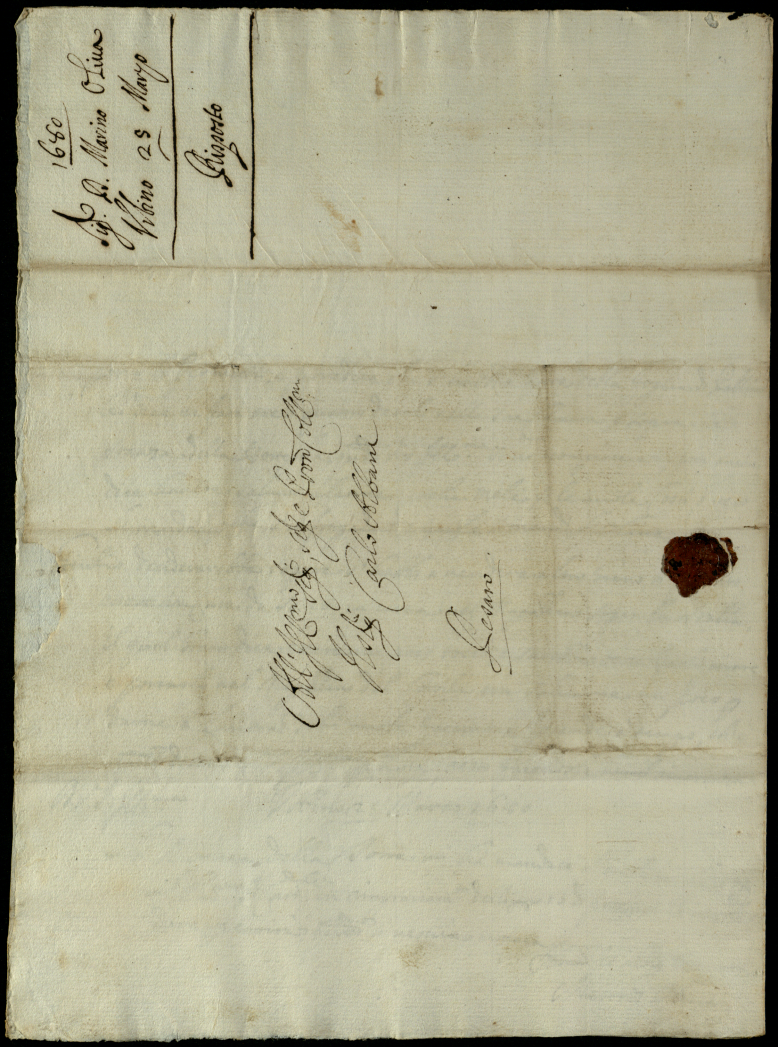 1680
Sig.r D. Marino Oliua
Vrbino 28 Marzo
Risposto
All' Ill.mo Sig.r Sig.e Pron Coll.mo
Il Sig.r Carlo Albani
Pesaro